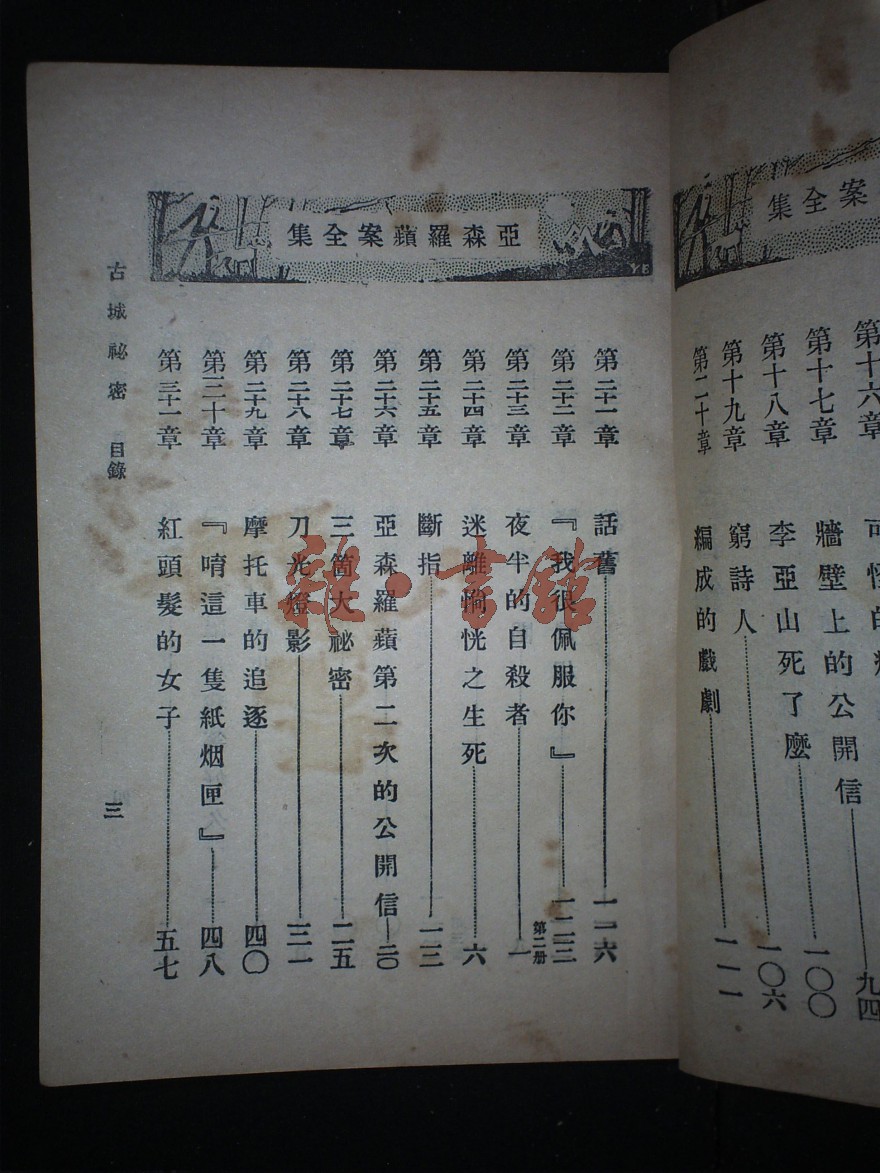 案全集
第十六章
九四
第十七章 牆壁上的公開信
一〇〇
第十八章 李亞山死了麼
一〇六
第十九章 窮詩人
一一一
第二十章 編成的戲劇
亞森羅蘋案全集
第二十一章 話舊 一一六
第二十二章 『我很佩服你』 一二三
第二册
第二十三章 夜半的自殺者 一
第二十四章 迷離惝恍之生死 六
第二十五章 斷指 一三
第二十六章 亞森羅蘋第二次的公開信 二〇
第二十七章 三箇大祕密 二五
第二十八章 刀光燈影 三一
第二十九章 摩托車的追逐 四〇
第三十章 『唷這一隻紙烟匣』 四八
第三十一章 紅頭髮的女子 五七
古城祕密 目錄
三
雜·書館
YE